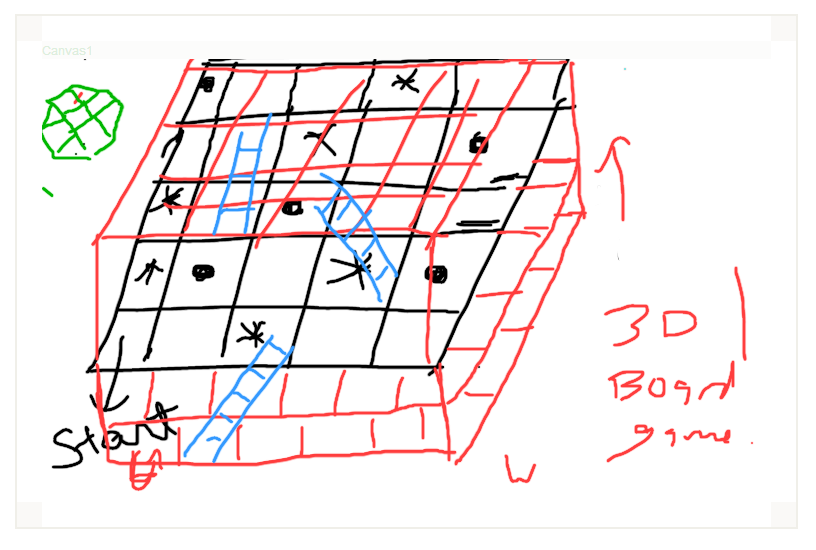 Canvas1
Start
3D
Board
game.
W